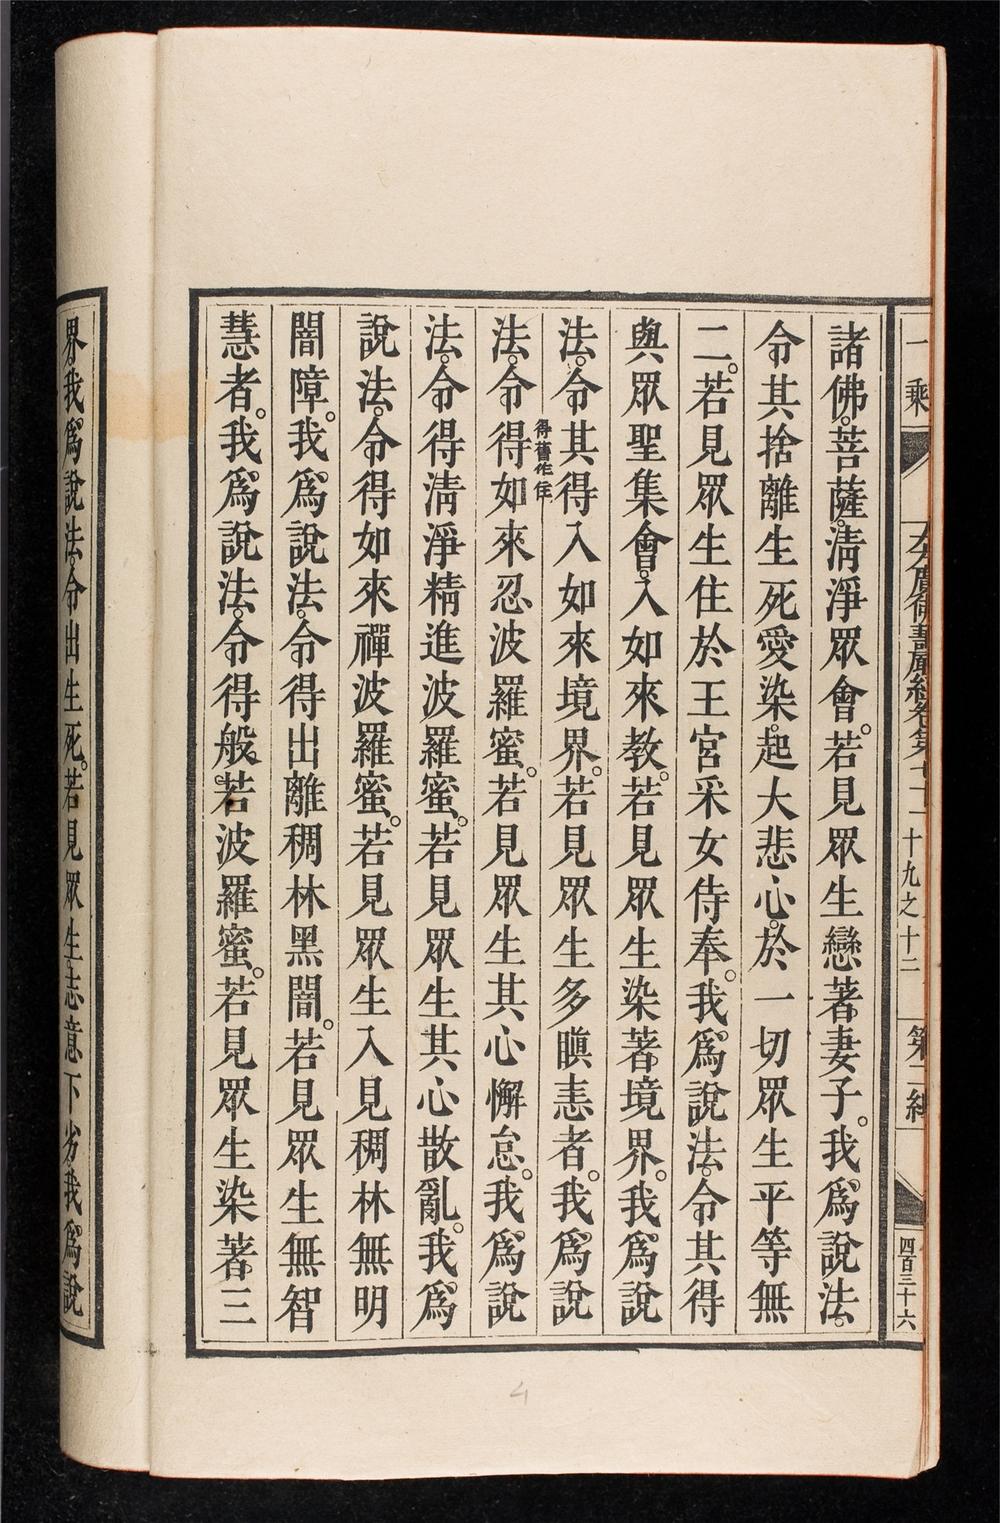 一乘
大方廣佛華嚴經卷第七十一 十九之十二
第二
四百三十六
諸佛。菩薩。清淨眾會。若見眾生戀著妻子。我爲說法。
令其捨離生死愛染。起大悲心。於一切眾生平等無
二。若見眾生住於王宮采女侍奉。我爲說法。令其得
與眾聖集會。入如來教。若見眾生染著境界。我爲說
法。令其得入如來境界。若見眾生多瞋恚者。我爲說
得舊作住
法。令得如來忍波羅蜜。若見眾生其心懈怠。我爲說
法。令得清淨精進波羅蜜。若見眾生其心散亂。我爲
說法。令得如來禪波羅蜜。若見眾生入見稠林無明
闇障。我爲說法。令得出離稠林黑闇。若見眾生無智
慧者。我爲說法。令得般若波羅蜜。若見眾生染著三
界。我爲說法。令出生死。若見眾生志意下劣。我爲說
4